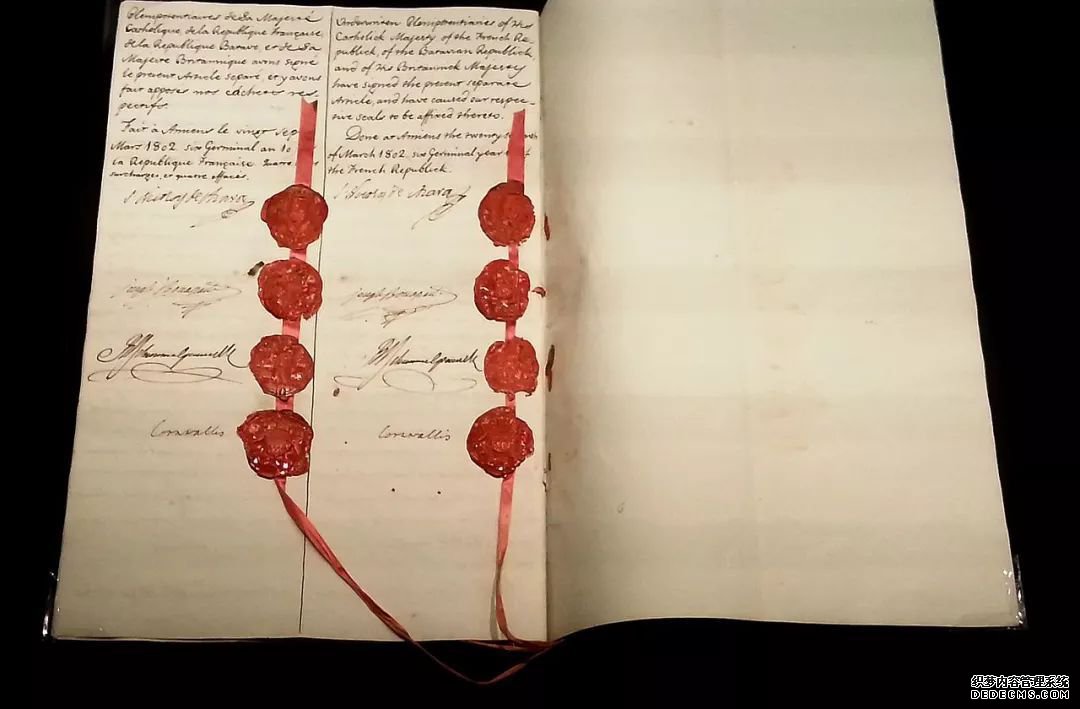 Plenipotentiaires de Sa Majesté
Catholique, de la République Française,
de la Republique Batave, et de Sa
Majeste Britannique avons signé
le present Article separé, et y avons
fait apposer nos cachets res-
pectifs.
Fait à Amiens le vingt sep
Mars 1802. six Germinal an 10
la Republique Française. quatre
surchargés, et quatre effacés.
Plenipotentiaries of His
Catholick Majesty of the French Re-
publick, of the Batavian Republick,
and of His Britannick Majesty
have signed the present separate
Article, and have caused our respec-
tive seals to be affixed thereto.
Done at Amiens the twenty
of March 1802. six Germinal year
the French Republick.
Cornwallis
Cornwallis
织梦内容管理系统
DEDECMS.COM